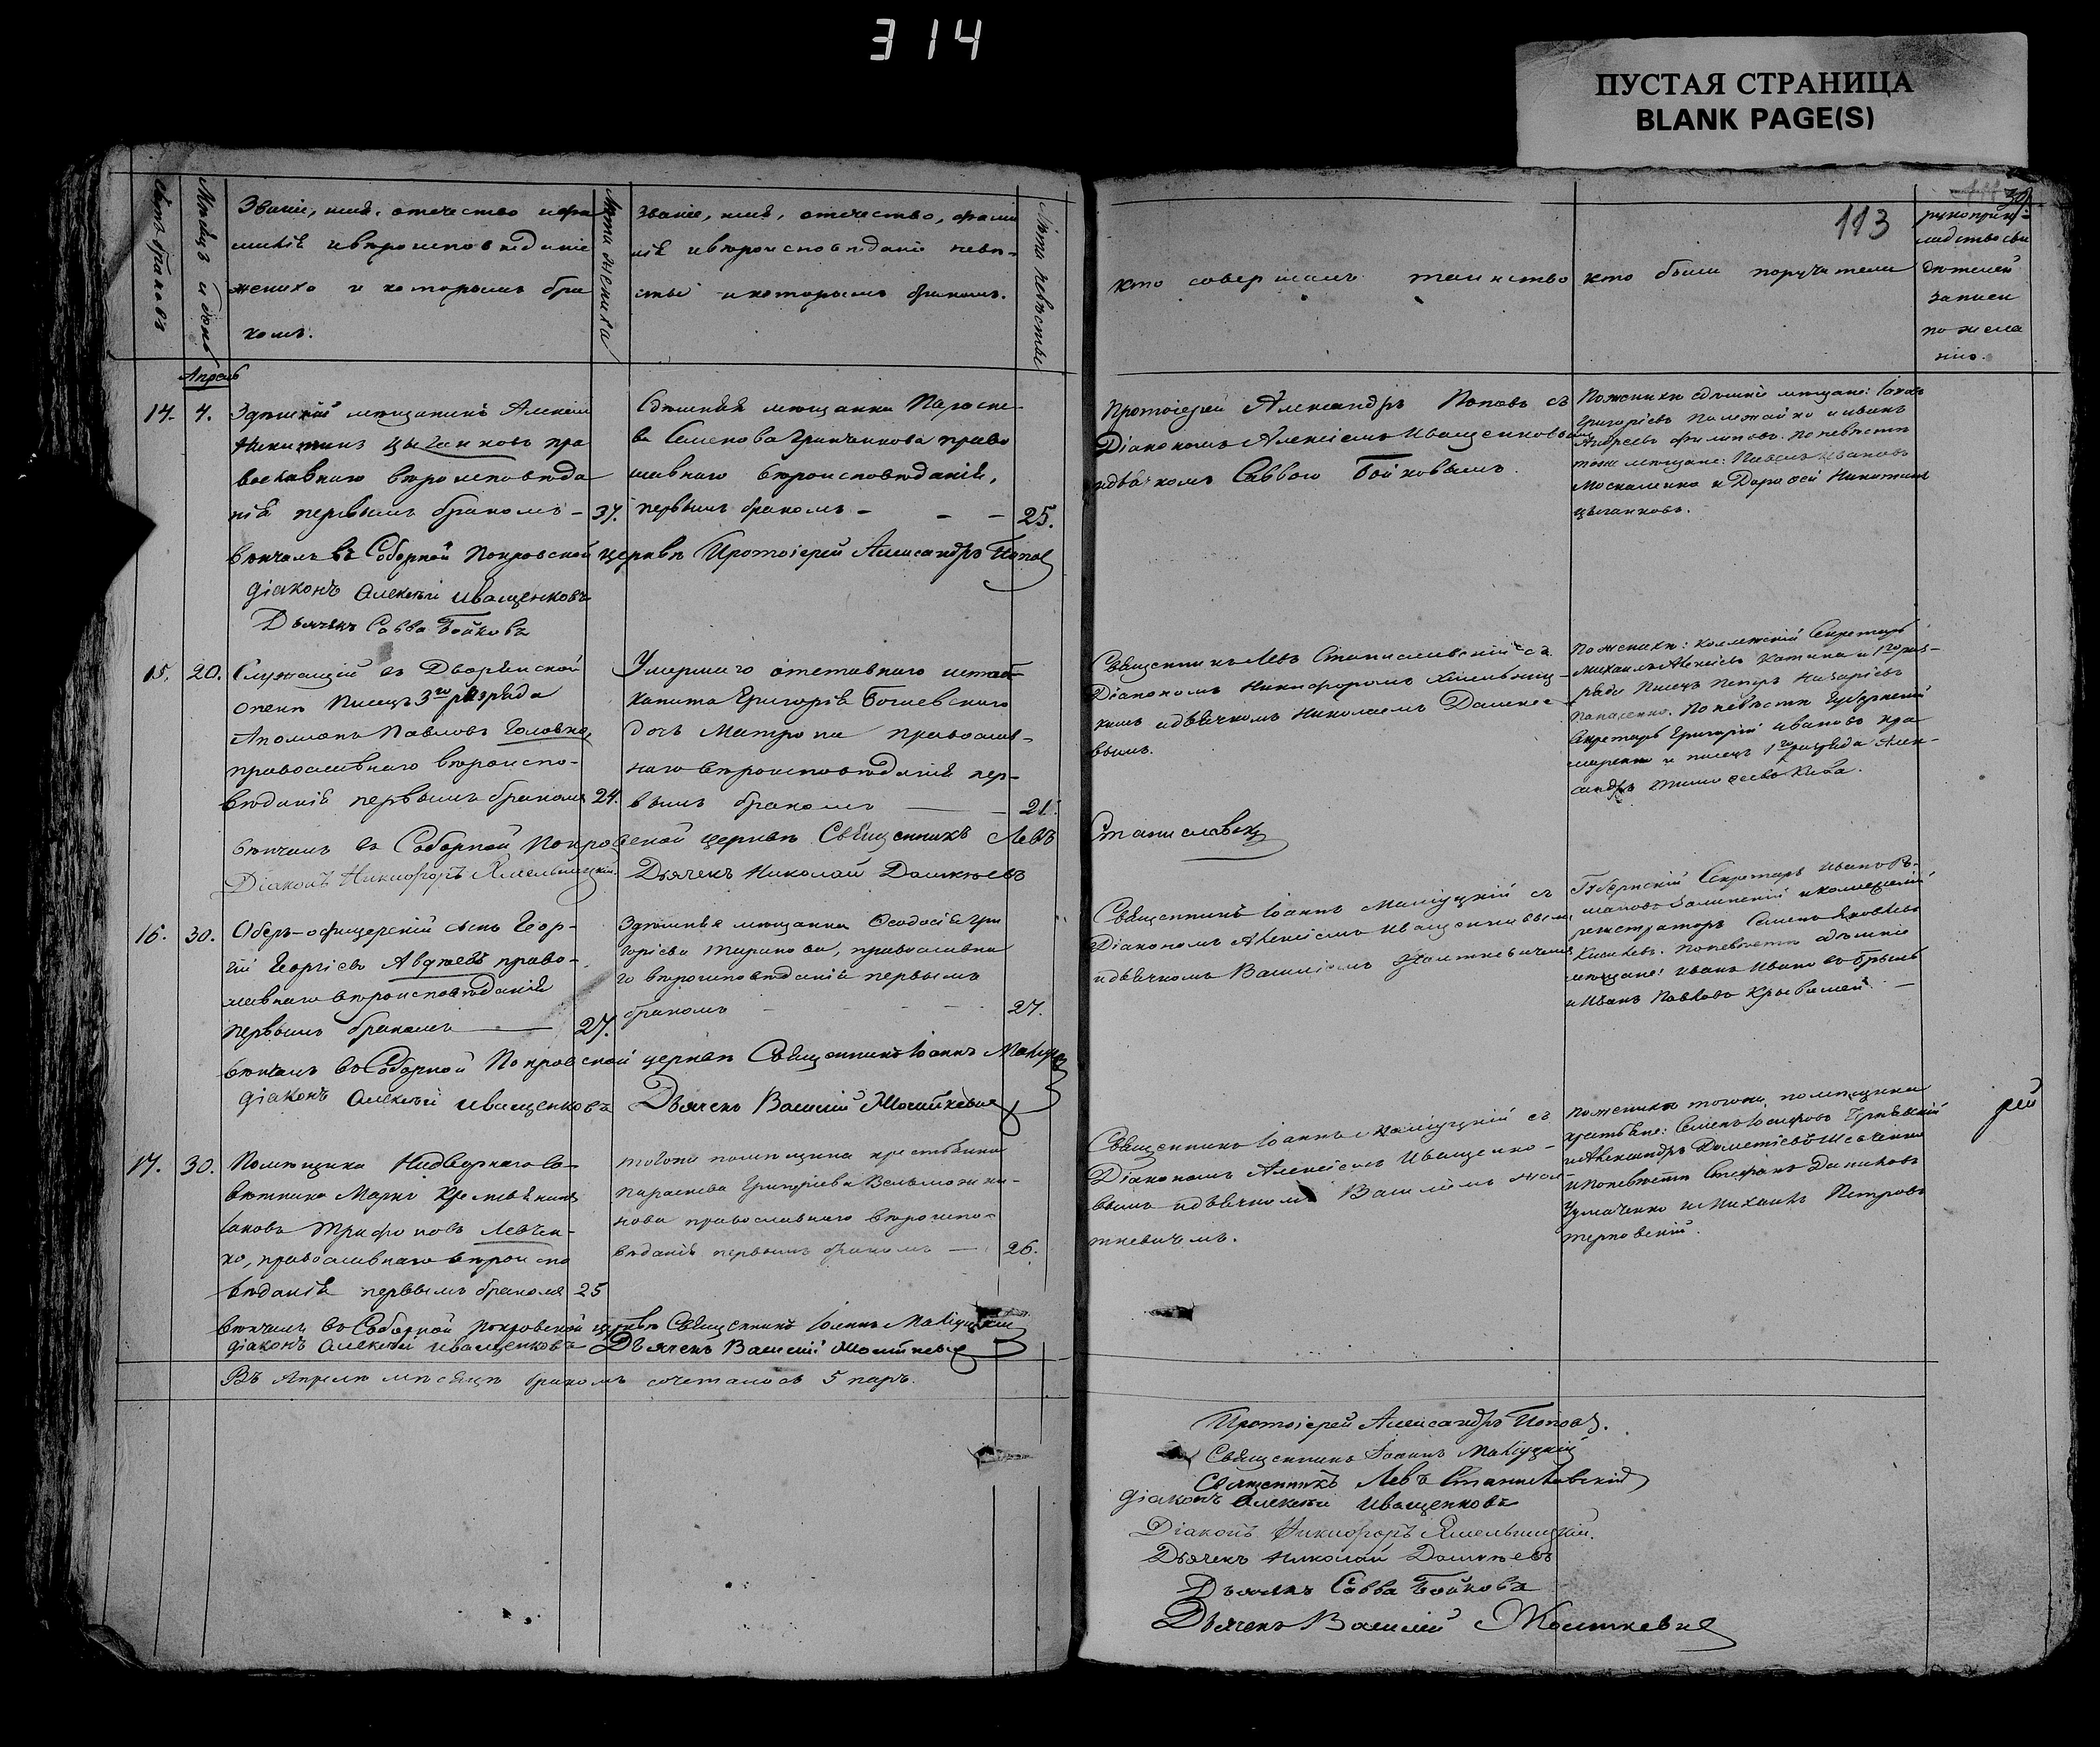 314
ПУСТАЯ СТРАНИЦА
BLANK PAGE(S)
Счетъ браковъ
Мѣсяцъ и день
Званіе, имя, отечество и фа
милія и вѣроисповѣданіе
жениха и которымъ бра
комъ.
Лѣта жениха
Званіе, имя, отечество, фами
лія и вѣроисповѣданіе невѣ-
сты и которымъ бракомъ.
Лѣта невѣсты
Кто совершалъ таинство
Кто были поручители
113
рукоприк-
ладство сви
дѣтелей
записи
по жела
нію.
Апрель
14. 4.
Здѣшній мѣщанинъ Алексѣй
Никитинъ Цыганковъ пра
вославнаго вѣроисповѣда
нія первымъ бракомъ - 37.
Здѣшняя мѣщанка Параске-
ва Семенова Гринчинкова право
славнаго вѣроисповѣданія,
первымъ бракомъ - - - 25.
Протоіерей Александръ Поповъ съ
Діакономъ Алексіемъ Иващенковымъ
и дьячкомъ Саввою Бойковымъ.
По женихѣ здѣшніе мѣщане: Іаковъ
Григорьевъ и Иванъ
Андреевъ Филиповъ. По невѣстѣ
тоже мѣщане: Павелъ Ивановъ
Москаленко и Дорофей Никитинъ
Цыганковъ.
Вѣнчалъ въ Соборной Покровской церквѣ Протоіерей Александръ Поповъ
Діаконъ Алексѣй Иващенковъ
Дьячекъ Савва Бойковъ
15. 20.
Служащій въ Дворянской
Опекѣ Писецъ 3го разряда
Аполлонъ Павловъ Головко,
православнаго вѣроиспо-
вѣданія первымъ бракомъ 24.
Умершаго отставнаго штабс
капитана Григорія Богаевскаго
дочь Матрона православ-
наго вѣроисповѣданія пер-
вымъ бракомъ — 21.
Священникъ Левъ Станиславскій съ
Діакономъ Никифоромъ Хмельниц-
кимъ и дьячкомъ Николаемъ
вымъ.
По женихѣ: Коллежскій Секретарь
Михаилъ Алексѣевъ и 1го раз-
ряда Писецъ Петръ Назарьевъ
По невѣстѣ Губернскій
Секретарь Григорій Ивановъ
и писецъ 1го разряда Алек-
сандръ
Вѣнчалъ въ Соборной Покровской церквѣ Священникъ Левъ Станиславскій
Діаконъ Никифоръ Хмельницкій. Дьячекъ Николай
16. 30.
Оберъ-офицерскій сынъ Геор-
гій Георгіевъ Авдѣевъ право-
славнаго вѣроисповѣданія
первымъ бракомъ — 27.
Здѣшняя мѣщанка Ѳеодосія Гри
горьева Таранова, православна
го вѣроисповѣданія первымъ
бракомъ - - - 27.
Священникъ Іоаннъ съ
Діакономъ Алексіемъ Иващенковымъ
и дьячкомъ Василіемъ
Губернскій Секретарь Иванъ
и коллежскій
регистраторъ Семенъ Яковлевъ
По невѣстѣ здѣшніе
мѣщане: Иванъ Ивановъ
и Иванъ Павловъ —
Вѣнчалъ въ Соборной Покровской церквѣ Священникъ Іоаннъ
Діаконъ Алексѣй Иващенковъ Дьячекъ Василій
17. 30.
Помѣщика Надворнаго Со-
вѣтника Марка крестьянинъ
Іаковъ Трифоновъ Левчен-
ко, православнаго вѣроиспо
вѣданія первымъ бракомъ 25
Тогоже помѣщика крестьянка
Параскева Григорьева
нова православнаго вѣроиспо-
вѣданія первымъ бракомъ — 26.
Священникъ Іоаннъ съ
Діакономъ Алексіемъ Иващенко-
вымъ и дьячкомъ Василіемъ
По женихѣ тогоже помѣщика
крестьяне: Семенъ
и Александръ Шевченко
и по невѣстѣ Стефанъ Даниловъ
Чумаченко и Михаилъ Петровъ
Терновскій.
Вѣнчалъ въ Соборной Покровской церквѣ Священникъ Іоаннъ
Діаконъ Алексѣй Иващенковъ Дьячекъ Василій
Въ Апрелѣ мѣсяцѣ бракомъ сочеталось 5 паръ.
Протоіерей Александръ Поповъ.
Священникъ Іоаннъ
Священникъ Левъ Станиславскій
Діаконъ Алексѣй Иващенковъ
Діаконъ Никифоръ Хмельницкій.
Дьячекъ Николай
Дьячекъ Савва Бойковъ
Дьячекъ Василій